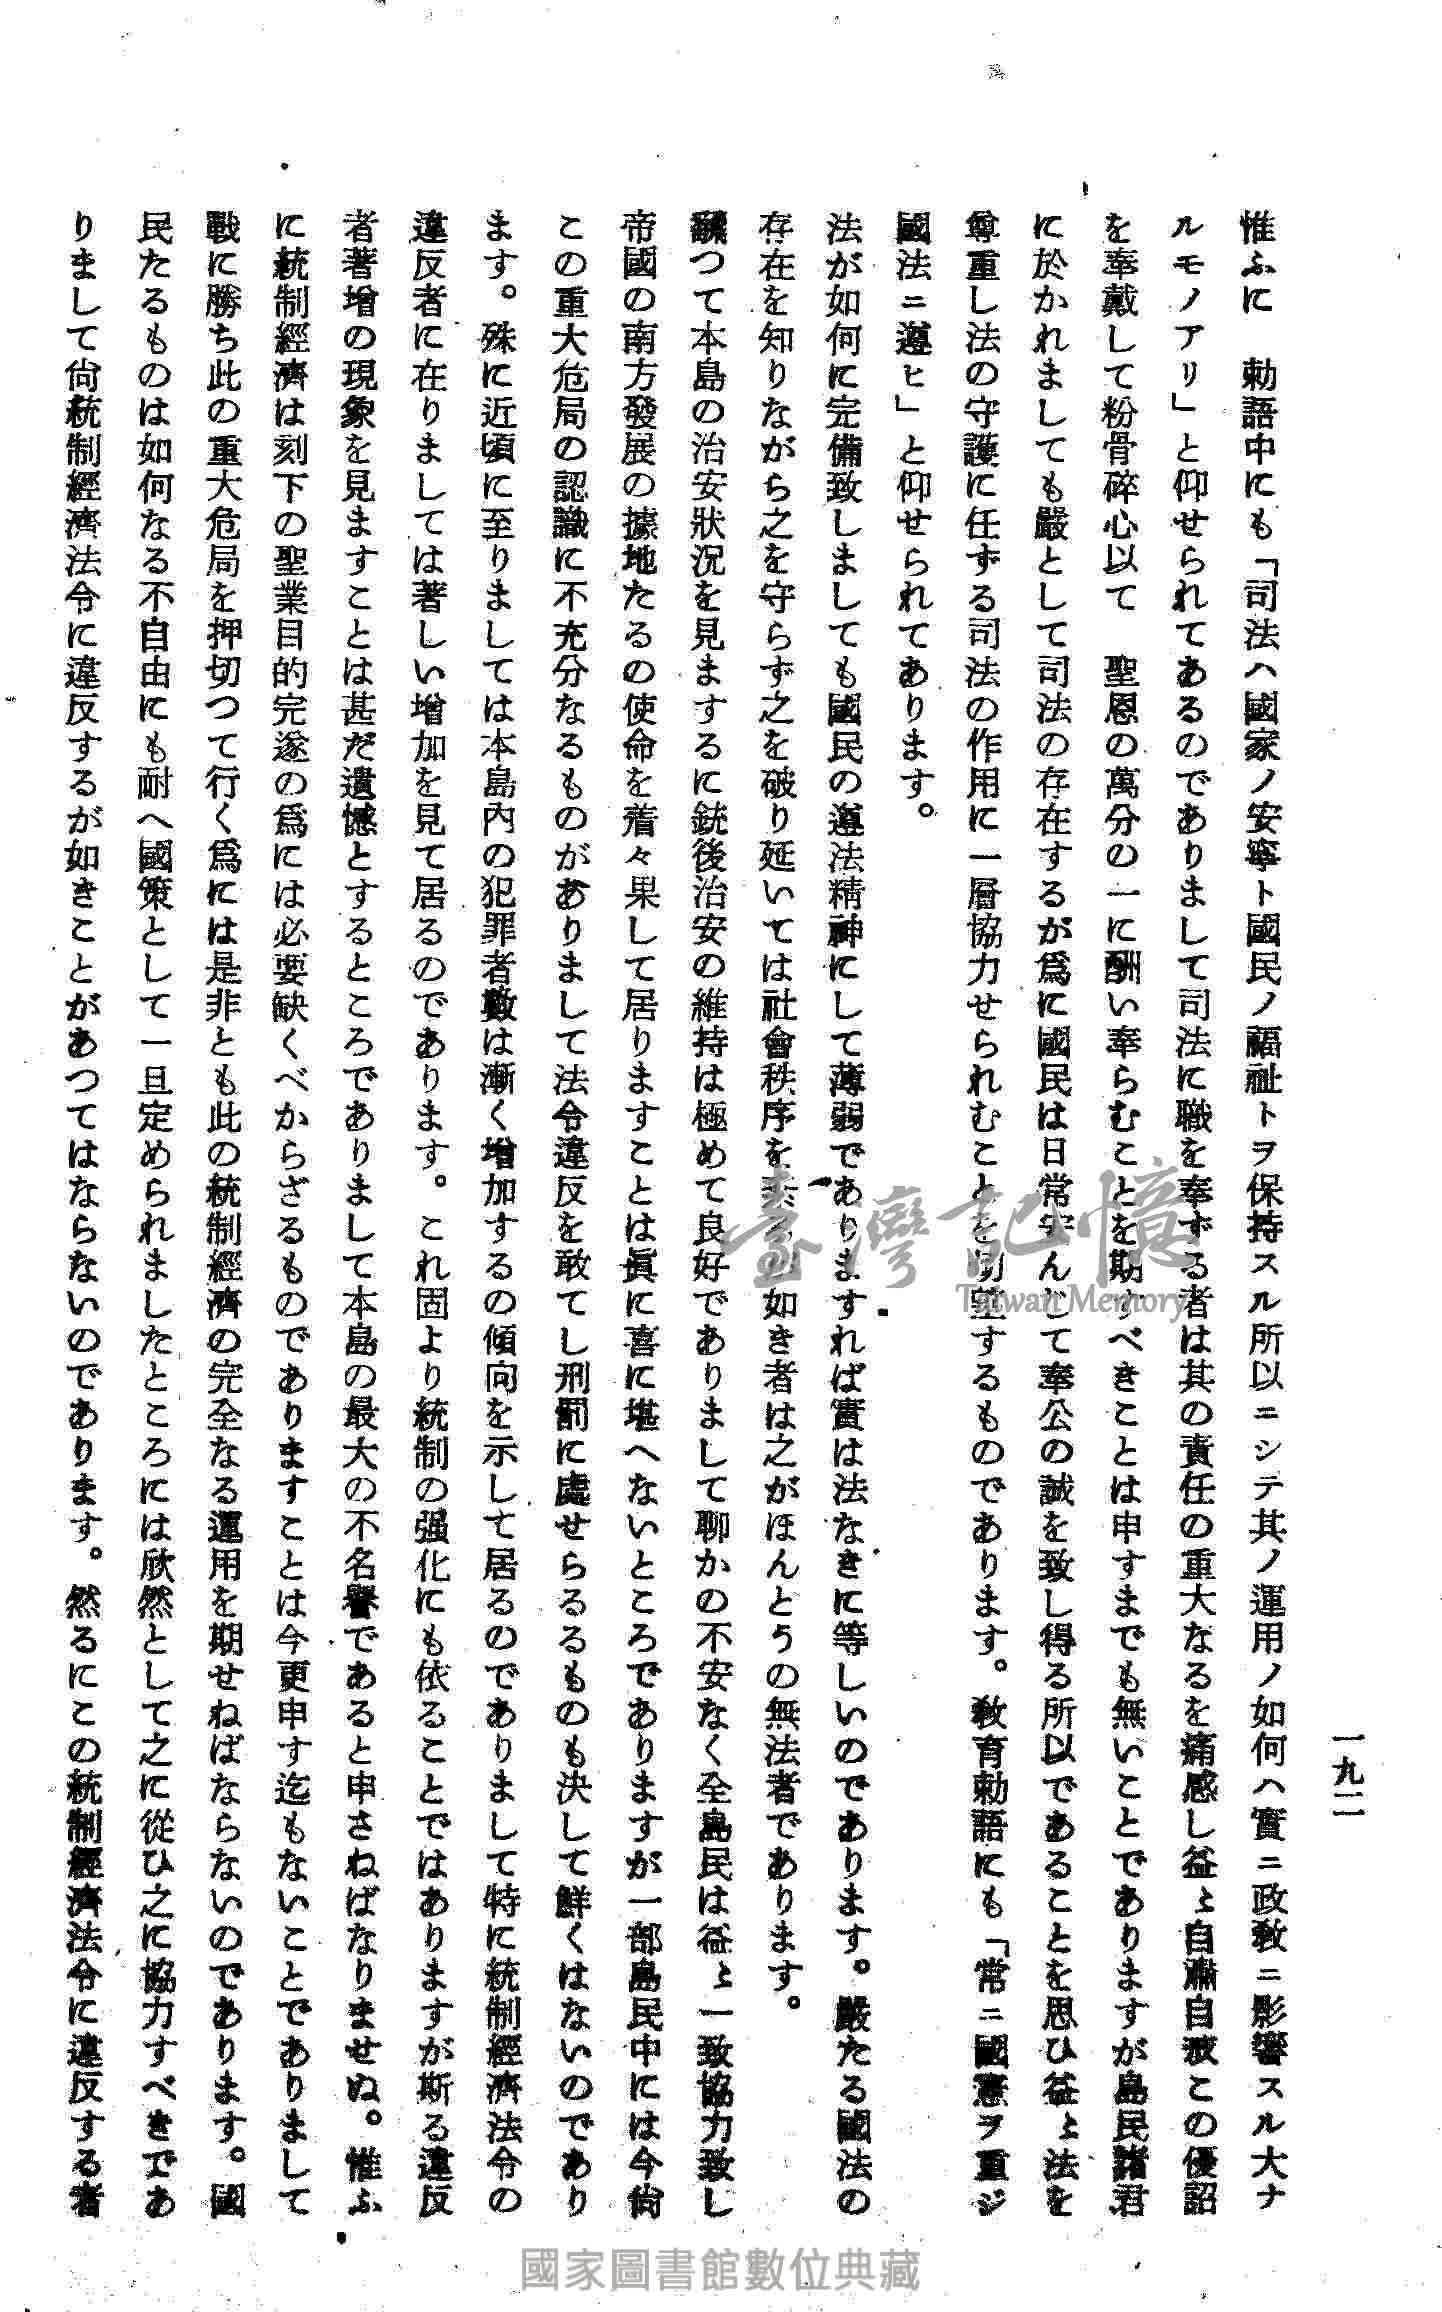 一九二
惟ふに　勅語中にも「司法ハ國家ノ安寧ト國民ノ福祉トヲ保持スル所以ニシテ其ノ運用ノ如何ハ實ニ政敎ニ影響スル大ナ
ルモノアリ」と仰せられてあるのでありまして司法に職を奉ずる者は其の責任の重大なるを痛感し益〻自肅自戒この優詔
を奉戴して粉骨碎心以て　聖恩の萬分の一に酬い奉らむことを期すべきことは申すまでも無いことでありますが島民諸君
に於かれましても嚴として司法の存在するが爲に國民は日常安んじて奉公の誠を致し得る所以であることを思ひ益〻法を
尊重し法の守護に任ずる司法の作用に一層協力せられむことを切望するものであります。敎育勅語にも「常ニ國憲ヲ重ジ
國法ニ遵ヒ」と仰せられてあります。
法が如何に完備致しましても國民の遵法精神にして薄弱でありますれば實は法なきに等しいのであります。嚴たる國法の
存在を知りながら之を守らず之を破り延いては社會秩序を紊るが如き者は之がほんとうの無法者であります。
飜つて本島の治安狀況を見まするに銃後治安の維持は極めて良好でありまして聊かの不安なく全島民は益〻一致協力致し
帝國の南方發展の據地たるの使命を着々果して居りますことは眞に喜に堪へないところでありますが一部島民中には今尙
この重大危局の認識に不充分なるものがありまして法令違反を敢てし刑罰に處せらるるものも決して鮮くはないのであり
ます。殊に近頃に至りましては本島內の犯罪者數は漸く增加するの傾向を示して居るのでありまして特に統制經濟法令の
違反者に在りましては著しい增加を見て居るのであります。これ固より統制の强化にも依ることではありますが斯る違反
者著增の現象を見ますことは甚だ遺憾とするところでありまして本島の最大の不名譽であると申さねばなりませぬ。惟ふ
に統制經濟は刻下の聖業目的完遂の爲には必要缺くべからざるものでありますことは今更申す迄もないことでありまして
戰に勝ち此の重大危局を押切つて行く爲には是非とも此の統制經濟の完全なる運用を期せねばならないのであります。國
民たるものは如何なる不自由にも耐へ國策として一旦定められましたところには欣然として之に從ひ之に協力すべきであ
りまして尙統制經濟法令に違反するが如きことがあつてはならないのであります。然るにこの統制經濟法令に違反する者
臺灣記憶
Taiwan Memory
國家圖書館數位典藏